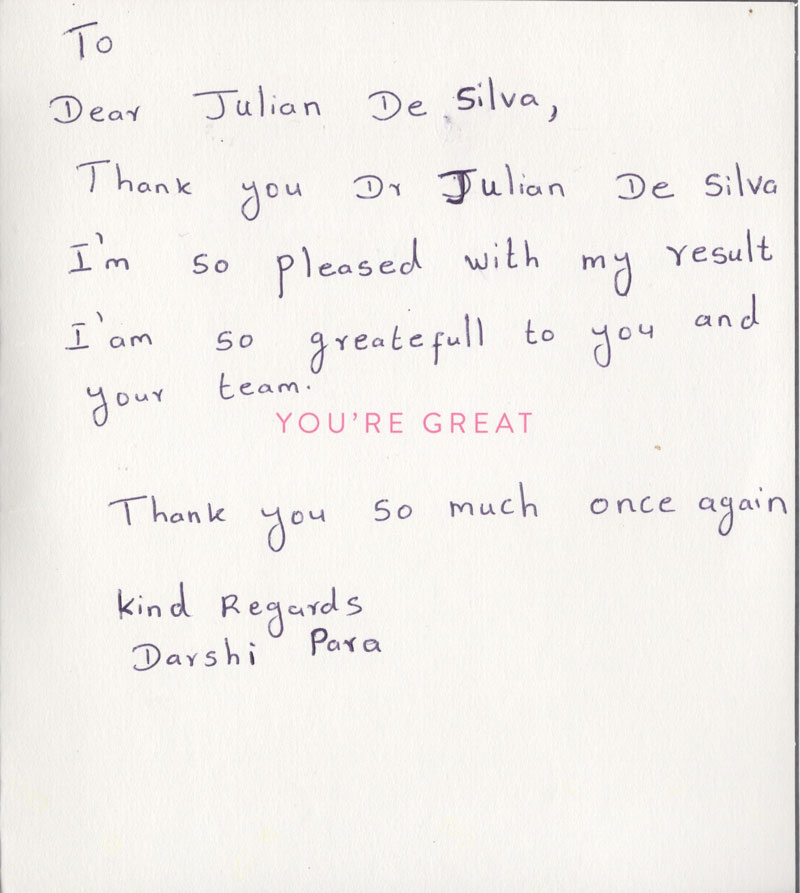 To
Dear Julian De Silva,
Thank you Dr Julian De Silva
I'm so pleased with my result
I'am so greatefull to you and
your team.
YOU'RE GREAT
Thank you so much once again
Kind Regards
Darshi Para